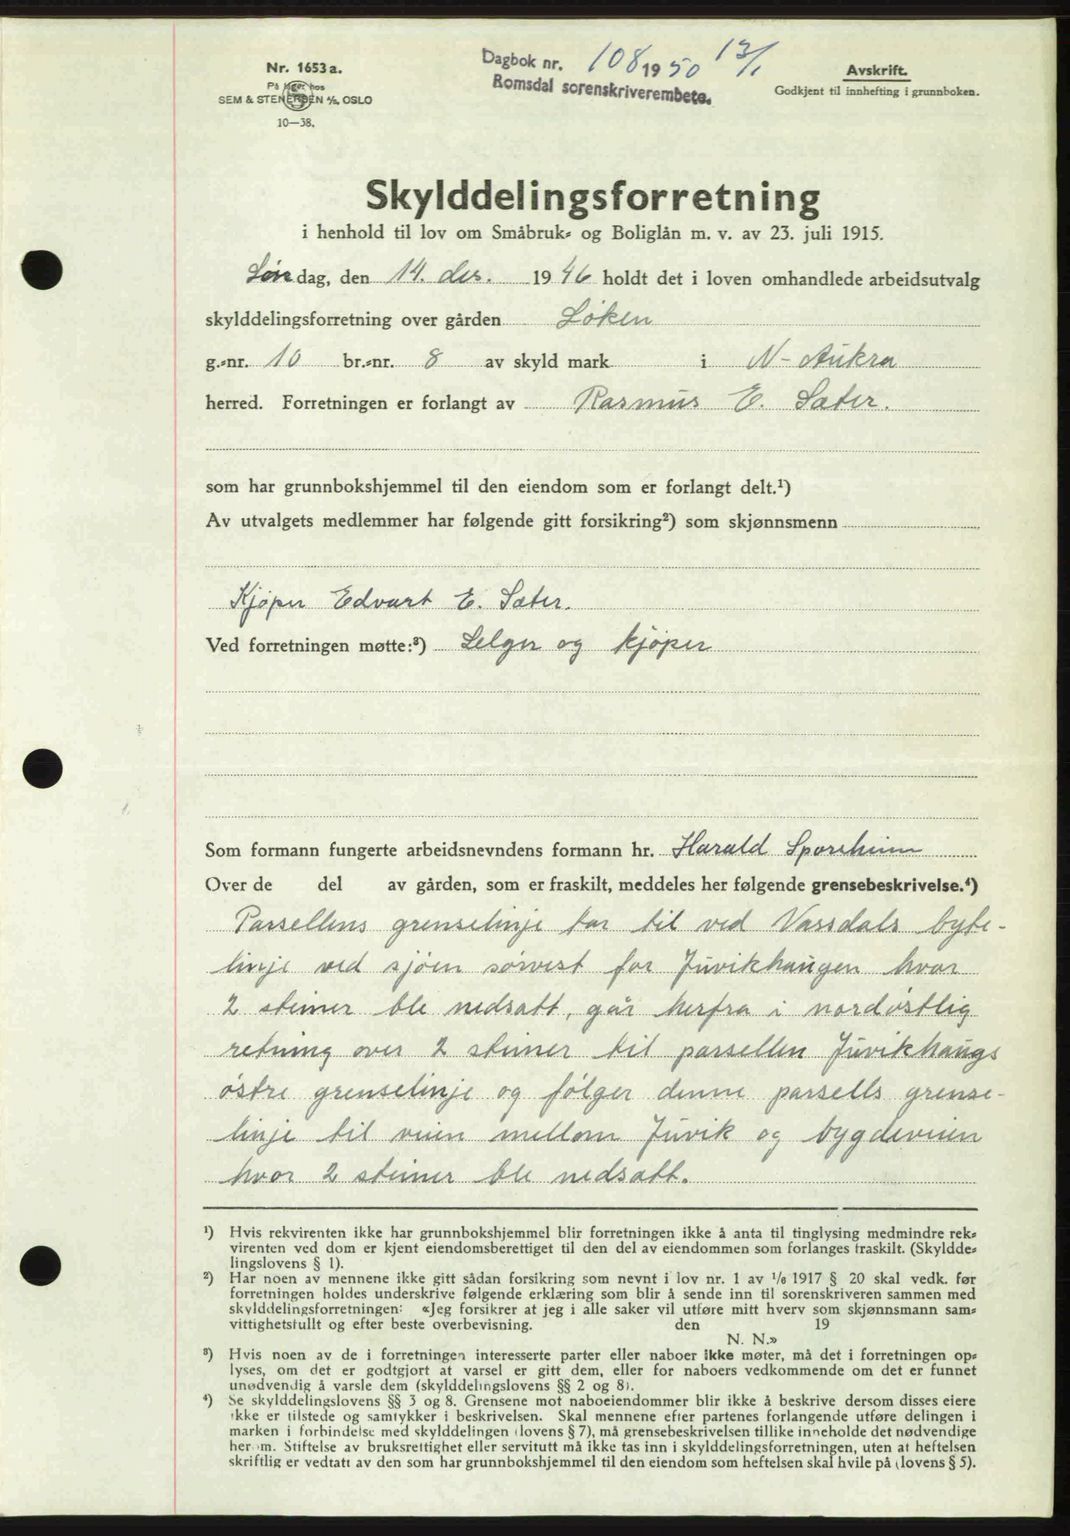 Nr. 1653a.
På lager hos
SEM & STENERSEN A/S, OSLO
10—38.
Dagbok nr. 108 1950 13/1
Romsdal sorenskriverembete.
Avskrift.
Godkjent til innhefting i grunnboken.
Skylddelingsforretning
i henhold til lov om Småbruk- og Boliglån m. v. av 23. juli 1915.
Løndag, den 14. des. 1946 holdt det i loven omhandlede arbeidsutvalg
skylddelingsforretning over gården Løken
g.-nr. 10 br.-nr. 8 av skyld mark i N-Aukra
herred. Forretningen er forlangt av Rasmus E. Sæter.
som har grunnbokshjemmel til den eiendom som er forlangt delt.¹)
Av utvalgets medlemmer har følgende gitt forsikring²) som skjønnsmenn
Kjøper Edvart E. Sæter.
Ved forretningen møtte:³) Selger og kjøper
Som formann fungerte arbeidsnevndens formann hr. Harald Sporsheim
Over de del av gården, som er fraskilt, meddeles her følgende grensebeskrivelse.⁴)
Parsellens grenselinje tar til ved Vassdals byte-
linje ved sjøen sørvest for Juvikhaugen hvor
2 steiner ble nedsatt, går herfra i nordøstlig
retning over 2 steiner til parsellen Juvikhaugs
østre grenselinje og følger denne parsells grense-
linje til veien mellom Juvik og bygdeveien
hvor 2 steiner ble nedsatt.
¹) Hvis rekvirenten ikke har grunnbokshjemmel blir forretningen ikke å anta til tinglysing medmindre rek-
virenten ved dom er kjent eiendomsberettiget til den del av eiendommen som forlanges fraskilt. (Skyldde-
lingslovens § 1).
²) Har noen av mennene ikke gitt sådan forsikring som nevnt i lov nr. 1 av 1/6 1917 § 20 skal vedk. før
forretningen holdes underskrive følgende erklæring som blir å sende inn til sorenskriveren sammen med
skylddelingsforretningen: «Jeg forsikrer at jeg i alle saker vil utføre mitt hverv som skjønnsmann sam-
vittighetsfullt og efter beste overbevisning. den 19
N. N.»
³) Hvis noen av de i forretningen interesserte parter eller naboer ikke møter, må det i forretningen op-
lyses, om det er godtgjort at varsel er gitt dem, eller for naboers vedkommende om det er funnet
unødvendig å varsle dem (skylddelingslovens §§ 2 og 8).
⁴) Se skylddelingslovens §§ 3 og 8. Grensene mot naboeiendommer blir ikke å beskrive dersom disses eiere
ikke er tilstede og samtykker i beskrivelsen. Skal mennene efter partenes forlangende utføre delingen i
marken i forbindelse med skylddelingen (lovens § 7), må grensebeskrivelsen tillike inneholde det nødvendige
herom. Stiftelse av bruksrettighet eller servitutt må ikke tas inn i skylddelingsforretningen, uten at heftelsen
skriftlig er vedtatt av den som har grunnbokshjemmel til den eiendom som heftelsen skal hvile på (lovens § 5).